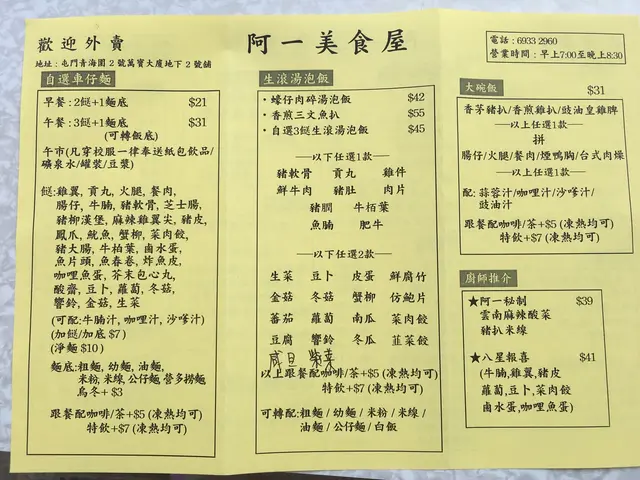 歡迎外賣
阿一美食屋
電話：6933 2960
營業時間：早上7:00至晚上8:30
地址：屯門青海圍2號萬寶大廈地下2號舖
自選車仔麵
早餐：2餸+1麵底 $21
午餐：3餸+1麵底 $31
(可轉飯底)
午市(凡穿校服一律奉送紙包飲品/
礦泉水/罐裝/豆漿)
餸：雞翼，貢丸，火腿，餐肉，
腸仔，牛腩，豬軟骨，芝士腸，
豬柳漢堡，麻辣雞翼尖，豬皮，
鳳爪，魷魚，蟹柳，菜肉餃，
豬大腸，牛柏葉，鹵水蛋，
魚片頭，魚春卷，炸魚皮，
咖哩魚蛋，芥末包心丸，
酸齋，豆卜，蘿蔔，冬菇，
響鈴，金菇，生菜
(可配：牛腩汁，咖哩汁，沙嗲汁)
(加餸/加底 $7)
(淨麵 $10)
麵底：粗麵，幼麵，油麵，
米粉，米線，公仔麵 營多撈麵
烏冬+ $3
跟餐配咖啡/茶+$5 (凍熱均可)
特飲+$7 (凍熱均可)
生滾湯泡飯
・蠔仔肉碎湯泡飯 $42
・香煎三文魚扒 $55
・自選3餸生滾湯泡飯 $45
──以下任選1款──
豬軟骨 貢丸 雞件
鮮牛肉 豬肚 肉片
豬膶 牛柏葉
魚腩 肥牛
──以下任選2款──
生菜 豆卜 皮蛋 鮮腐竹
金菇 冬菇 蟹柳 仿鮑片
番茄 蘿蔔 南瓜 菜肉餃
豆腐 響鈴 冬瓜 韮菜餃
咸旦 紫菜
以上跟餐配咖啡/茶+$5 (凍熱均可)
特飲+$7 (凍熱均可)
可轉配：粗麵/幼麵/米粉/米線/
油麵/公仔麵/白飯
大碗飯 $31
香茅豬扒/香煎雞扒/豉油皇雞脾
──以上任選1款──
拼
腸仔/火腿/餐肉/煙鴨胸/台式肉燥
──以上任選1款──
配：蒜蓉汁/咖哩汁/沙嗲汁/
豉油汁
跟餐配咖啡/茶+$5 (凍熱均可)
特飲+$7 (凍熱均可)
廚師推介
★阿一秘制 $39
雲南麻辣酸菜
豬扒米線
★八星報喜 $41
(牛腩，雞翼，豬皮
蘿蔔，豆卜，菜肉餃
鹵水蛋，咖哩魚蛋)